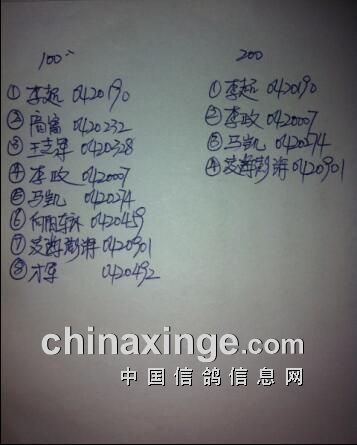 100
① 李超 0420190
② 商富 0420232
③ 0420328
④ 李政 0420007
⑤ 马凯 0420274
⑥ 0420459
⑦ 0420901
⑧ 0420492
200
① 李超 0420190
② 李政 0420007
③ 马凯 0420274
④ 0420901
chinaxinge.com
中国信鸽信息网